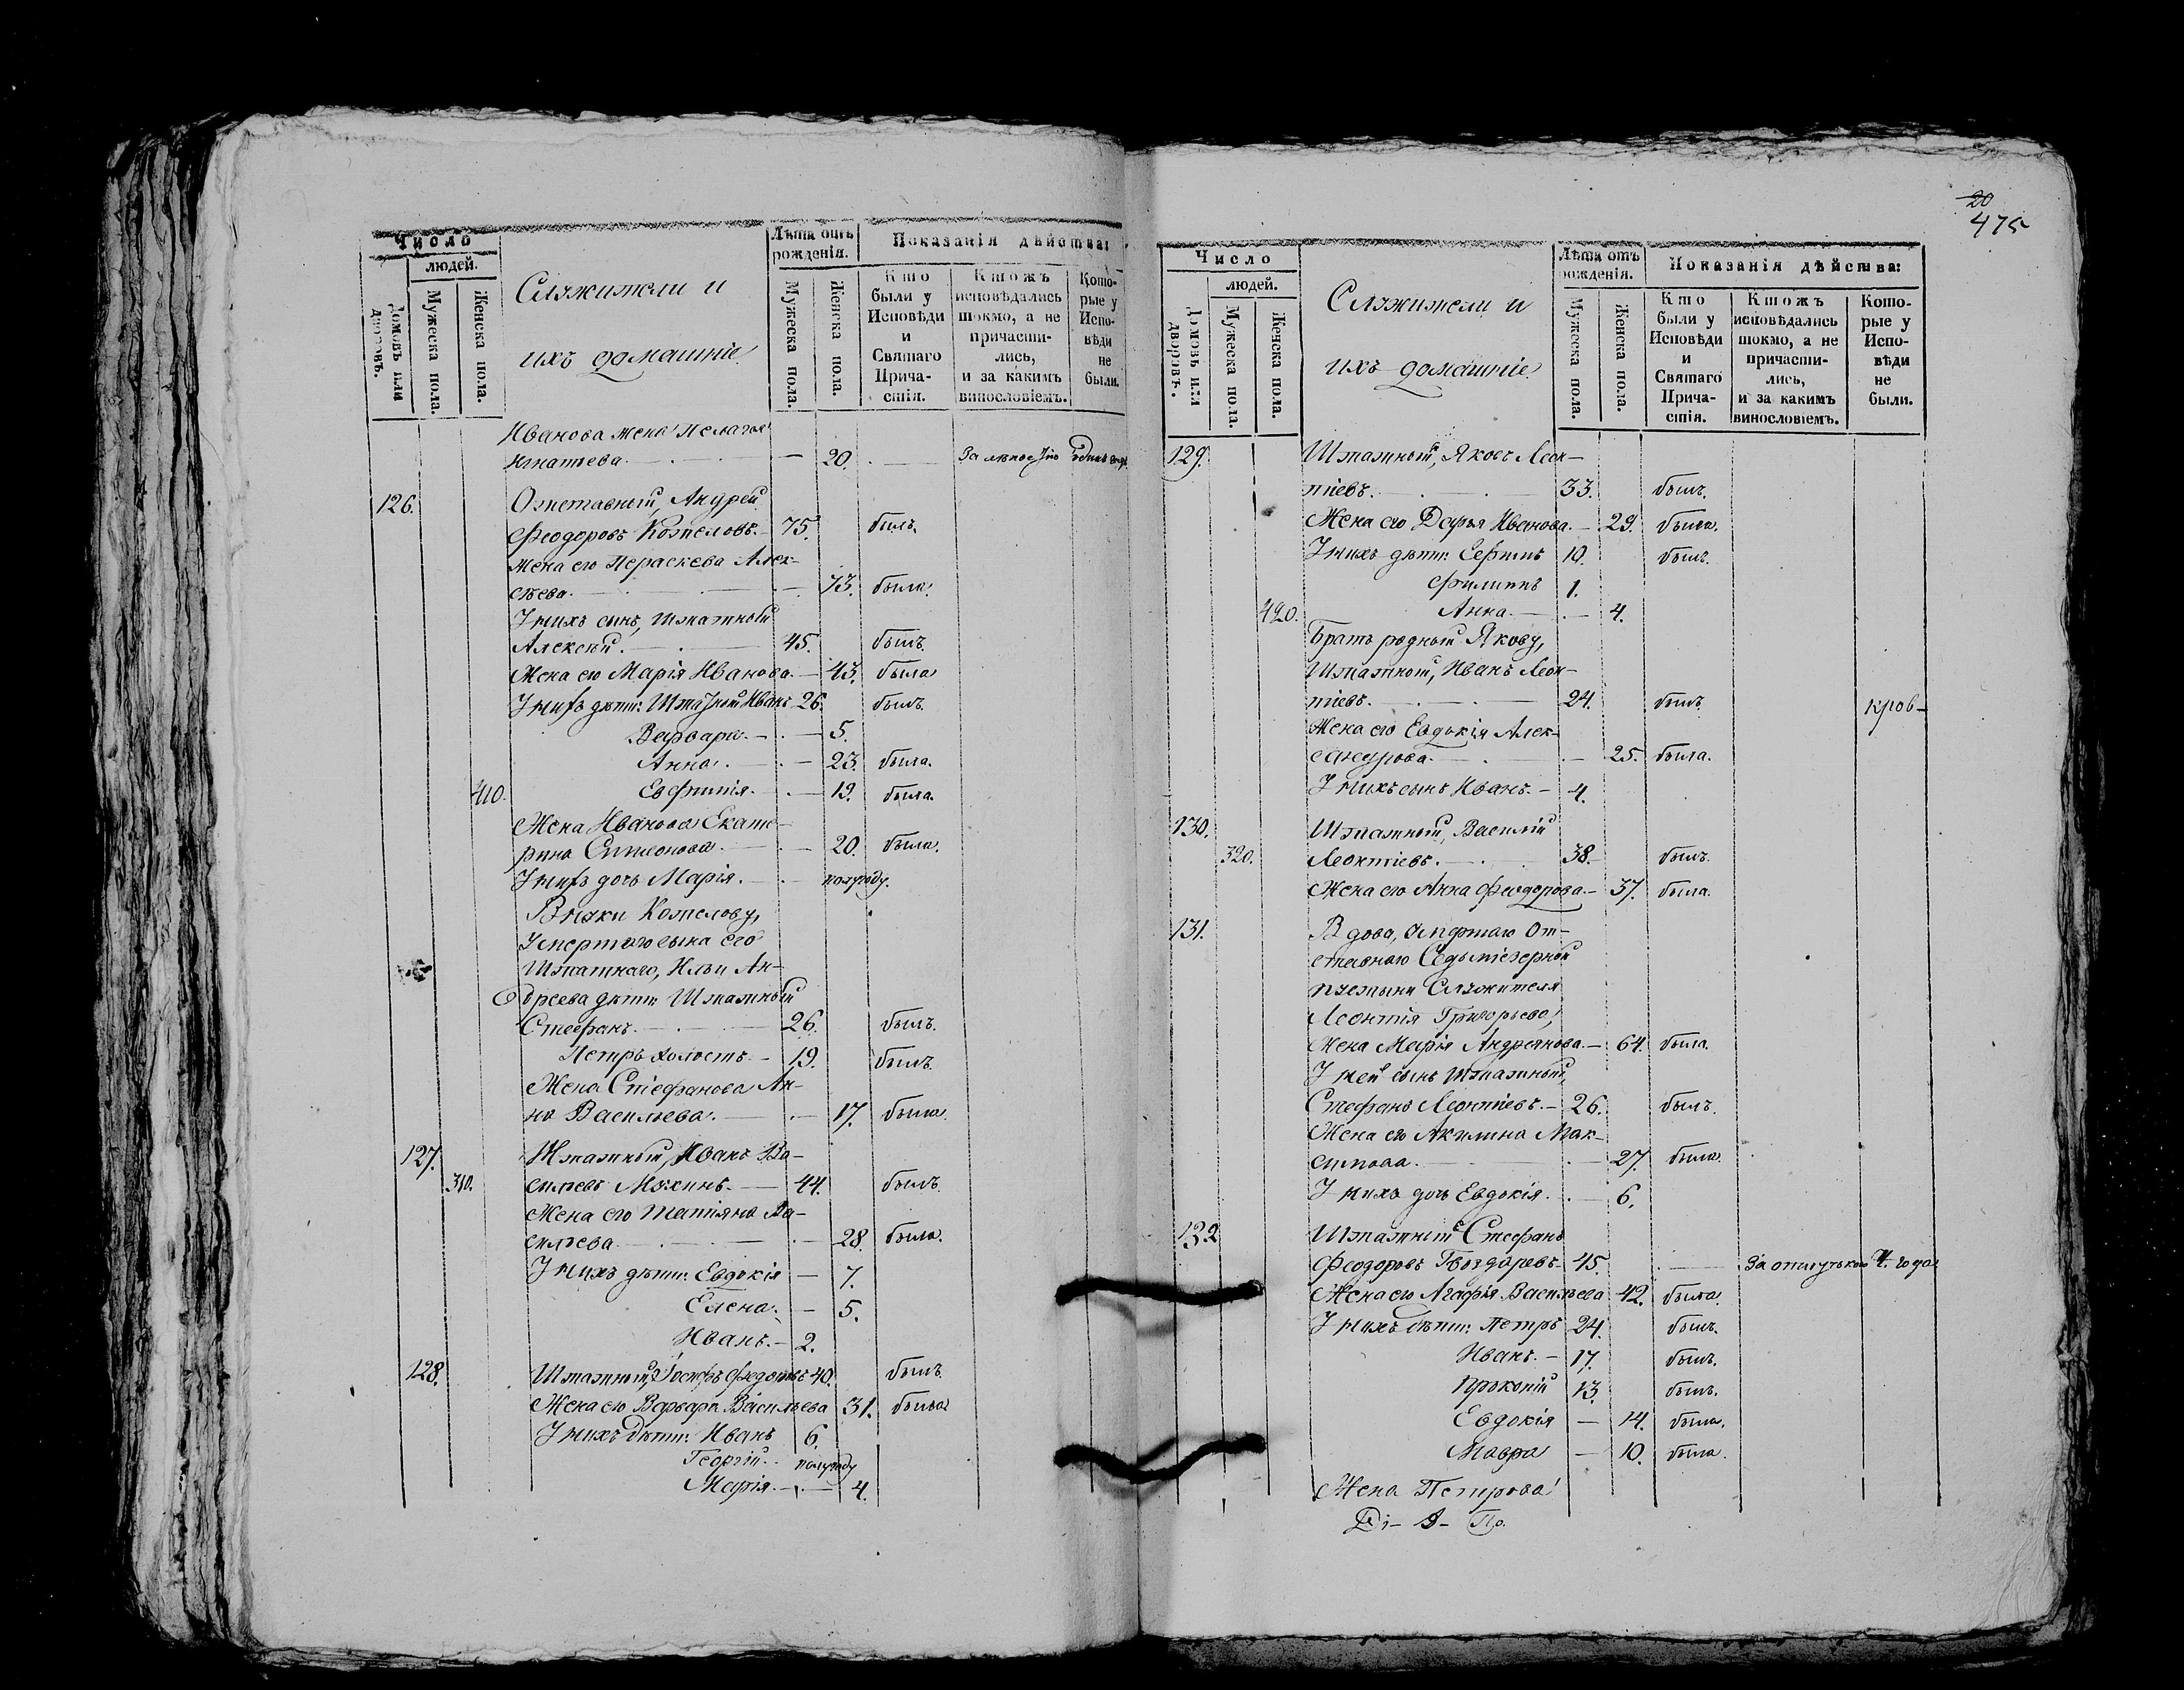 Число
людей.
Домовъ или дворовъ.
Мужеска пола.
Женска пола.
Служители и
ихъ домашніе
Лѣта отъ рожденія.
Мужеска пола.
Женска пола.
Показанія дѣйства:
Кто были у Исповѣди и Святаго Причастія.
Ктожъ исповѣдались токмо, а не причастились, и за какимъ винословіемъ.
Которые у Исповѣди не были.
Иванова жена Пелагея
Игнатьева. — 20. — За
126. Отставный, Андрей
Феодоровъ 75. былъ.
Жена его Параскева Алек-
сѣева. — 73. была.
У нихъ сынъ, Штатный
Алексѣй. 45. былъ.
Жена его Марія Иванова. — 43. была
У нихъ дѣти: Штатный Иванъ 26. былъ.
Варвара. — 5.
Анна. — 23. была.
410. Евфимія. — 19. была.
Жена Иванова Екате-
рина Симеонова. — 20. была.
У нихъ дочь Марія. — полугоду.
Внуки
Умершаго сына его
Штатнаго, Ильи Ан-
дреева дѣти: Штатный
Стефанъ. 26. былъ.
Петръ холостъ. — 19. былъ.
Жена Стефанова Ан-
на Васильева. — 17. была.
127. Штатный, Иванъ Ва-
310. сильевъ Мухинъ. — 44. былъ.
Жена его Татіяна Ва-
сильева — 28. была.
У нихъ дѣти: Евдокія — 7.
Елена. — 5.
Иванъ. — 2.
128. Штатный, Іосифъ 40. былъ.
Жена его Варвара Васильева 31. была
У нихъ дѣти: Иванъ 6.
Георгій. полугоду
Марія. — 4.
20
475
Число
людей.
Домовъ или дворовъ.
Мужеска пола.
Женска пола.
Служители и
ихъ домашніе
Лѣта отъ рожденія.
Мужеска пола.
Женска пола.
Показанія дѣйства:
Кто были у Исповѣди и Святаго Причастія.
Ктожъ исповѣдались токмо, а не причастились, и за какимъ винословіемъ.
Которые у Исповѣди не были.
129. Штатный, Яковъ Леон-
тіевъ. 33. былъ.
Жена его Дарья Иванова. — 29. была.
У нихъ дѣти: Ефимъ 10. былъ.
Филиппъ 1.
420. Анна. — 4.
Братъ родный Якову,
Штатный, Иванъ Леон-
тіевъ. 24. былъ. кров-
Жена его Евдокія Алек-
сандрова. — 25. была.
У нихъ сынъ Иванъ. — 4.
130. Штатный, Василій
320. Леонтіевъ. 38. былъ.
Жена его Анна Феодорова. — 37. была.
131. Вдова, умершаго От-
ставнаго Седьміезерной
пустыни Служителя
Леонтія Григорьева,
жена Марія Андреянова. — 64. была.
У ней сынъ Штатный,
Стефанъ Леонтіевъ. — 26. былъ.
Жена его Акилина Мак-
симова. — 27. была.
У нихъ дочь Евдокія. — 6.
132 Штатный Стефанъ
Феодоровъ 45. — За отлучкою 4. года
Жена его Агафія Васильева 42. была.
У нихъ дѣти: Петръ 24. былъ.
Иванъ. — 17. былъ.
Прокопій 13. былъ.
Евдокія — 14. была.
Мавра — 10. была.
Жена Петрова